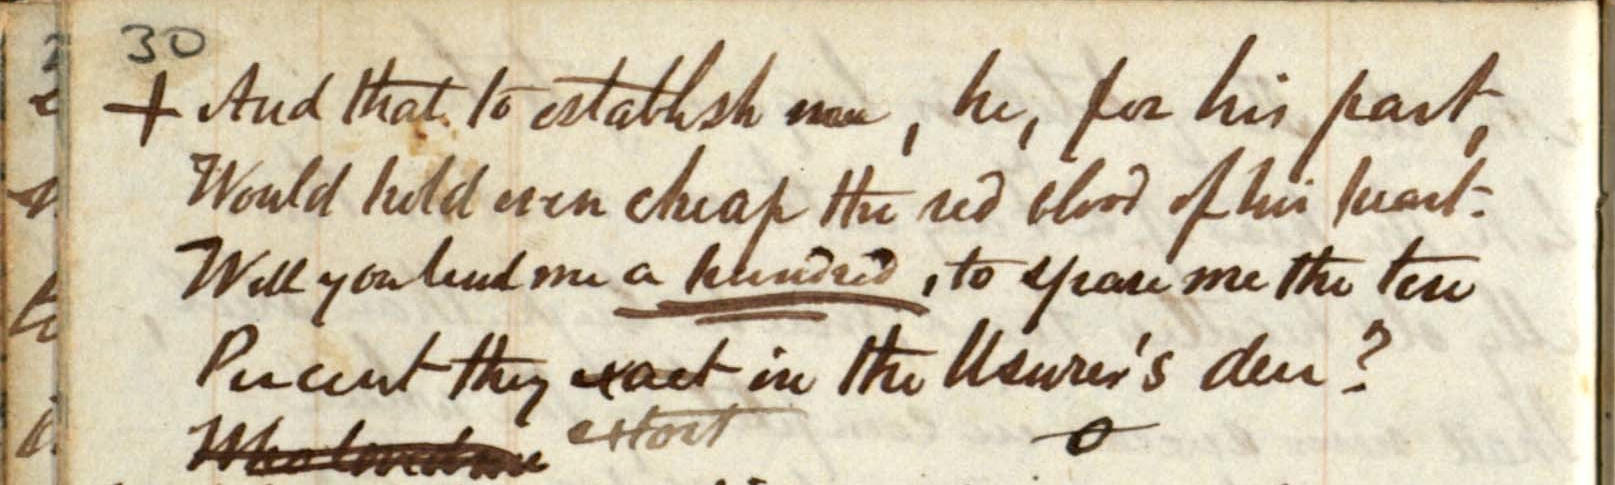 30
+ And that to establish now, he, for his part,
Would hold even cheap the red blood of his heart.
Will you lend me a hundred, to spare me the ten
Percent they exact in the Usurer's den?
extort